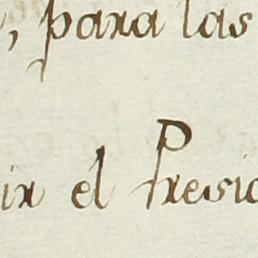 , para las
ir el Presid